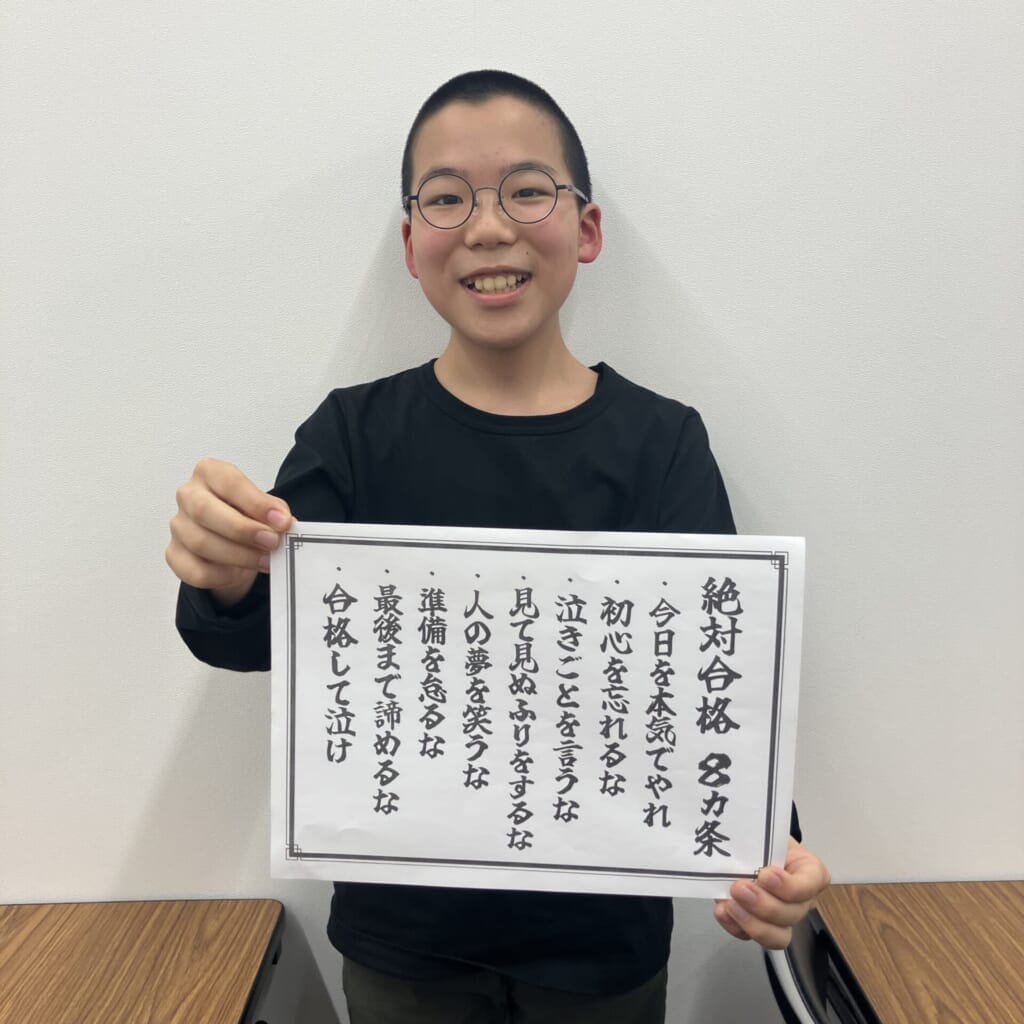 絶対合格 8カ条
・今日を本気でやれ
・初心を忘れるな
・泣きごとを言うな
・見て見ぬふりをするな
・人の夢を笑うな
・準備を怠るな
・最後まで諦めるな
・合格して泣け